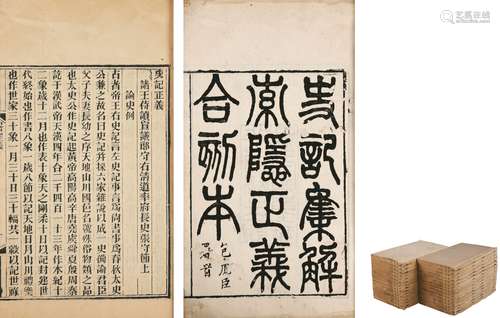 史記集解
索隱正義
合刻本
史記正義
諸王侍讀宣議郎守右清道率府長史張守節上
論史例
古者帝王右史記言左史記事言爲尚書事爲春秋太史
公兼之故名曰史記并採六家雜說以成一史備論君臣
父子夫妻長幼之序天地山川國邑名號殊俗物類之品
也太史公作史記起黃帝高陽高辛唐堯虞舜夏殷周秦
訖于漢武帝天漢四年合二千四百一十三年作本紀十
二象歲十二月也作表十象天之剛柔十日以記封建世
代終始也作書八象一歲八節以記天地日月山川禮樂
也作世家三十象一月三十日三十輻共一轂以記世祿